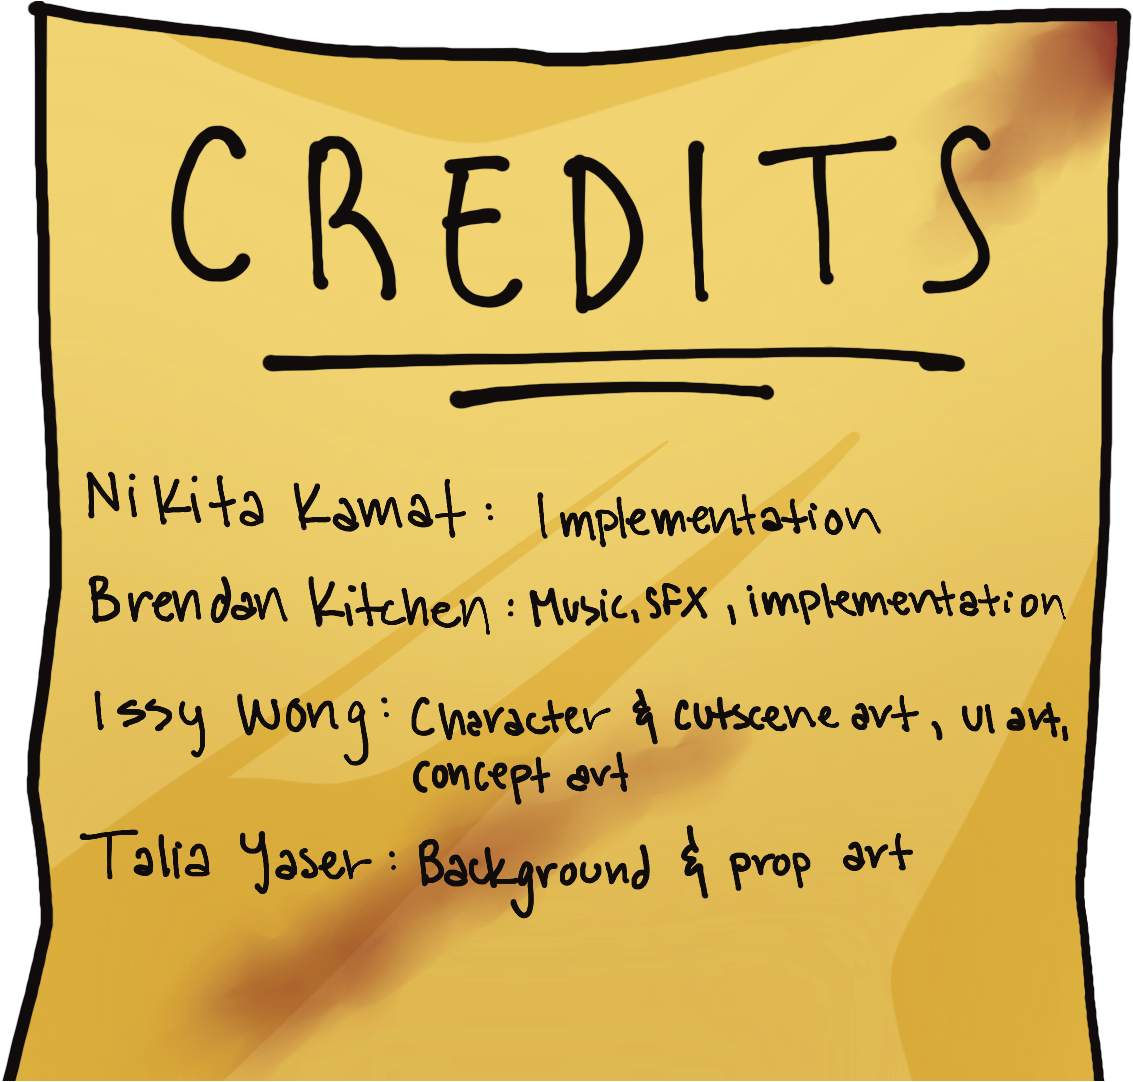 CREDITS
Nikita Kamat: Implementation
Brendan Kitchen: Music, SFX, implementation
Issy Wong: Character & cutscene art, UI art,
concept art
Talia Yaser: Background & prop art